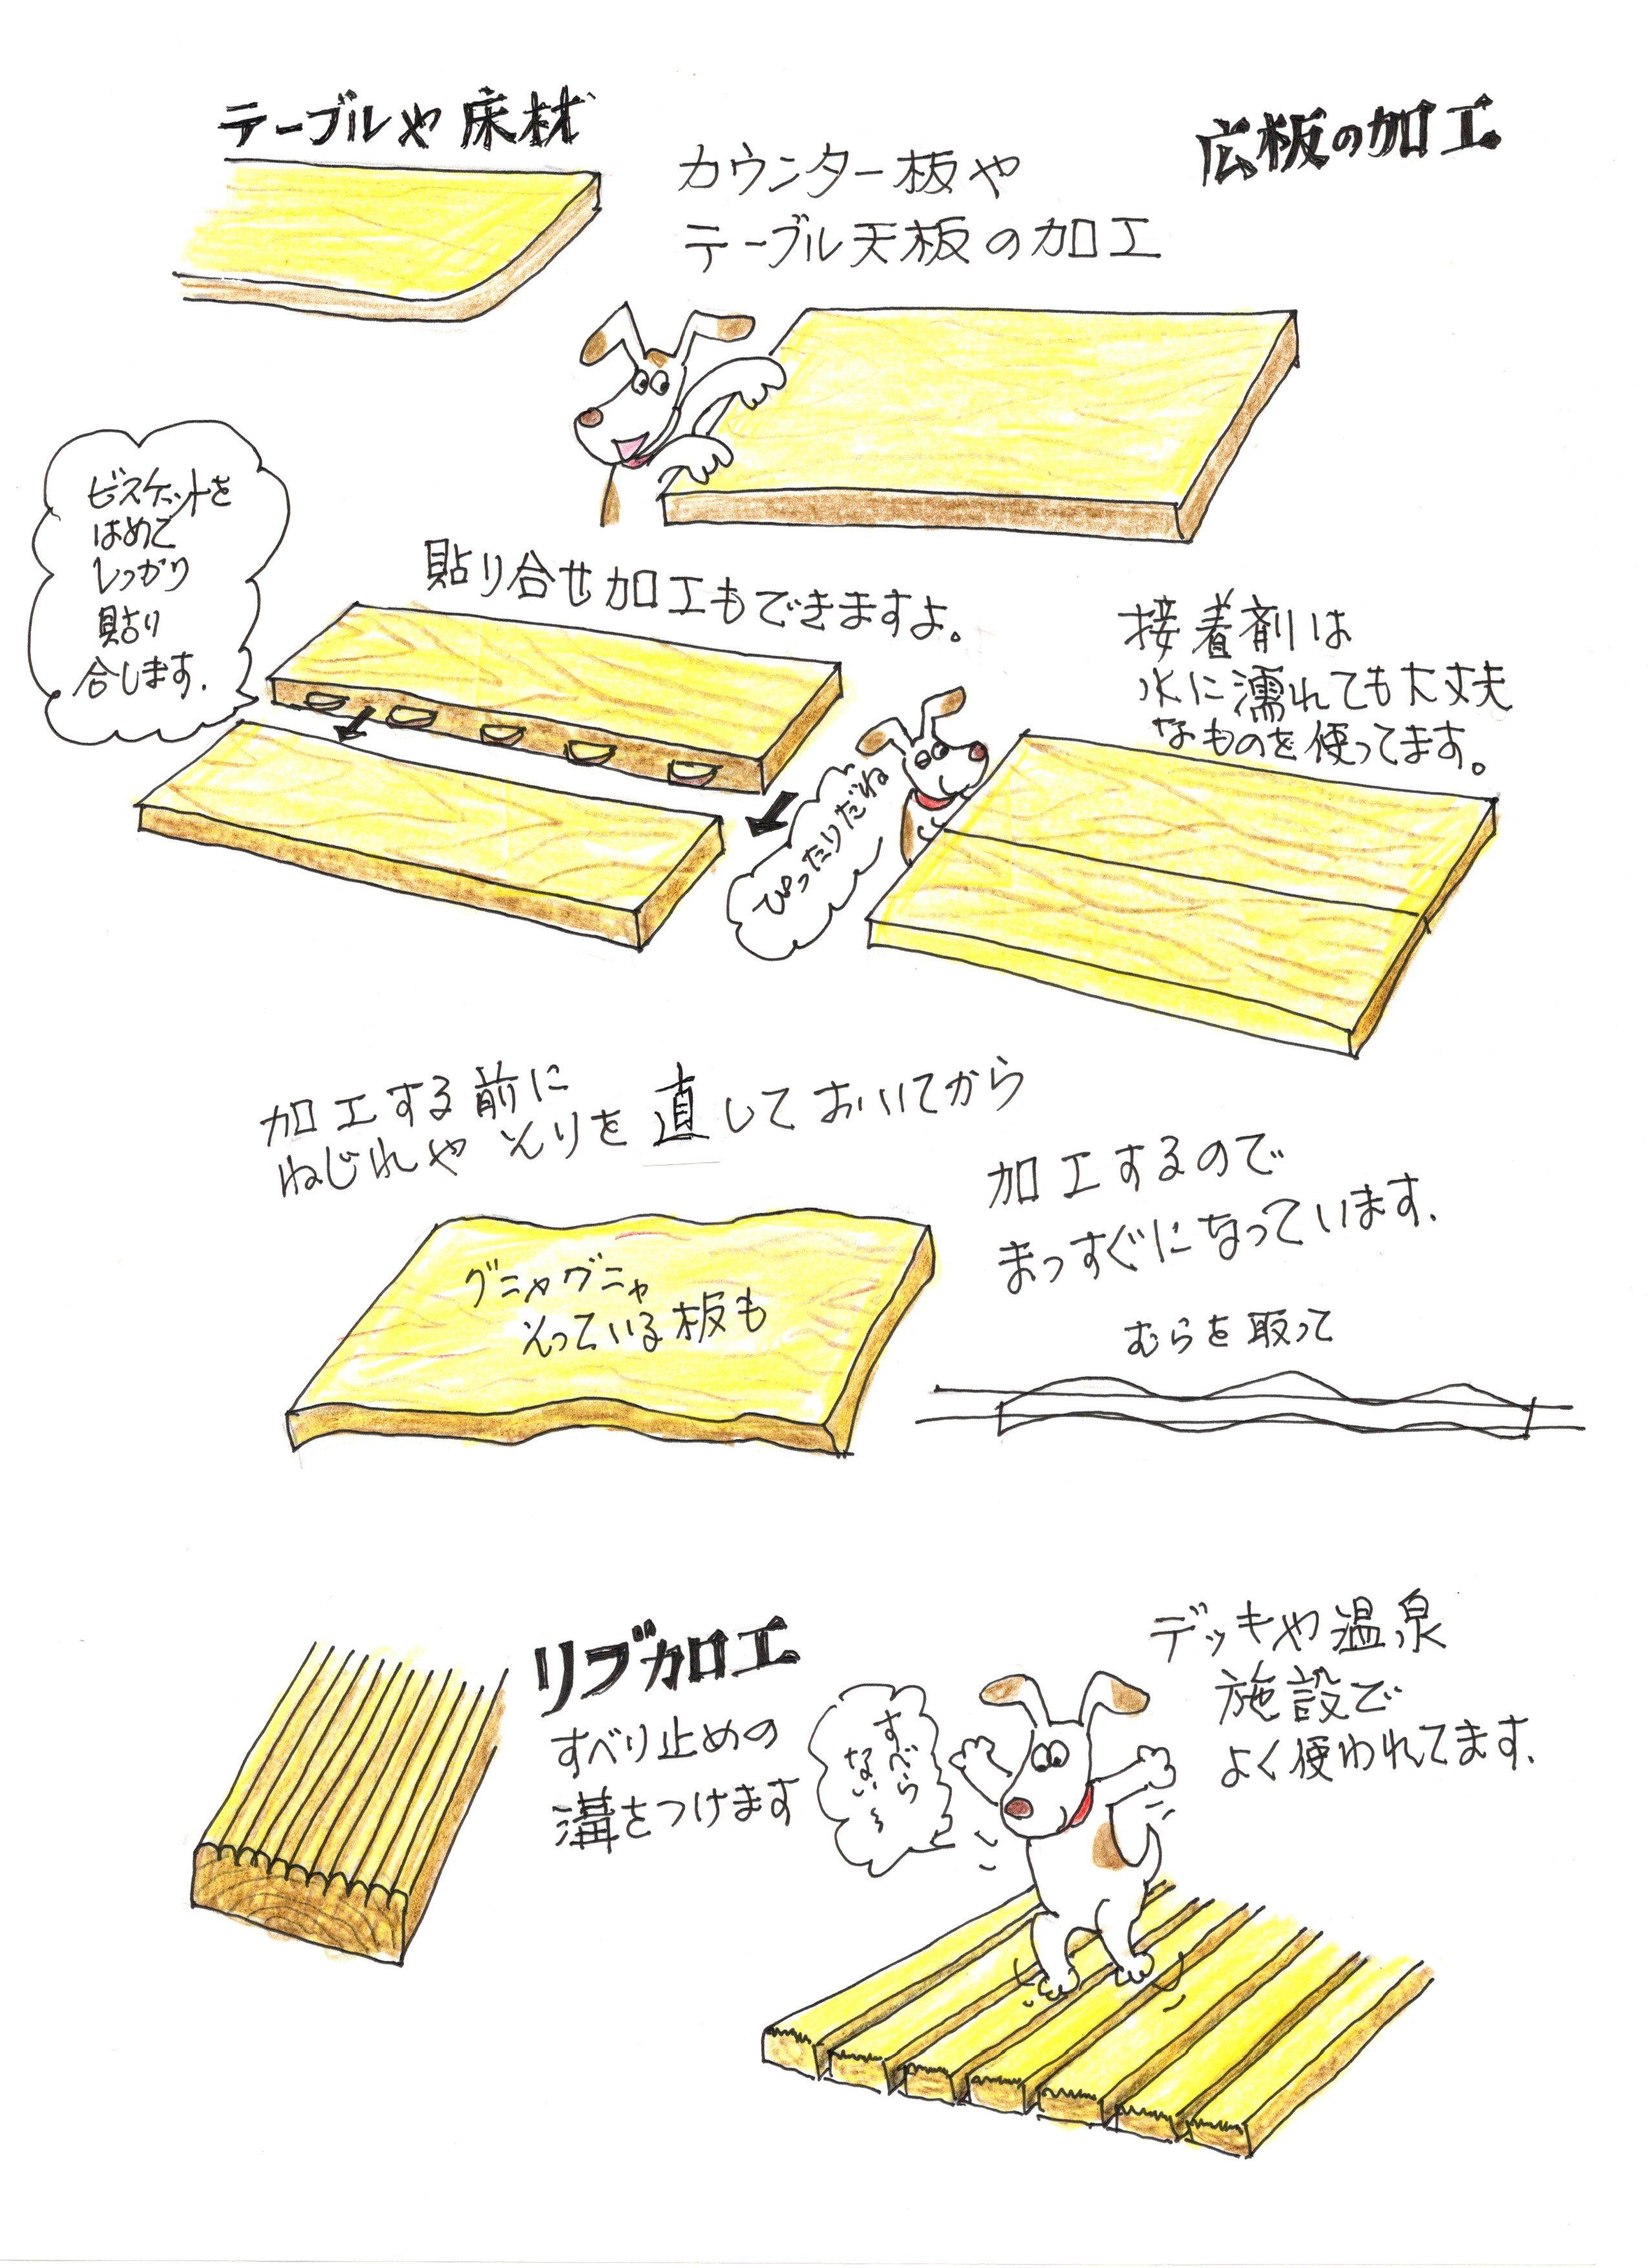 テーブルや床材
広板の加工
カウンター板や
テーブル天板の加工
ビスケットを
はめて
しっかり
貼り
合します.
貼り合せ加工もできますよ。
接着剤は
水に濡れても大丈夫
なものを使ってます。
ぴったりだね
加工する前に
ねじれやそりを直しておいてから
加工するので
まっすぐになっています.
グニャグニャ
そっている板も
むらを取って
リブ加工
すべり止めの
溝をつけます
すべら
ない〜
デッキや温泉
施設で
よく使われてます.